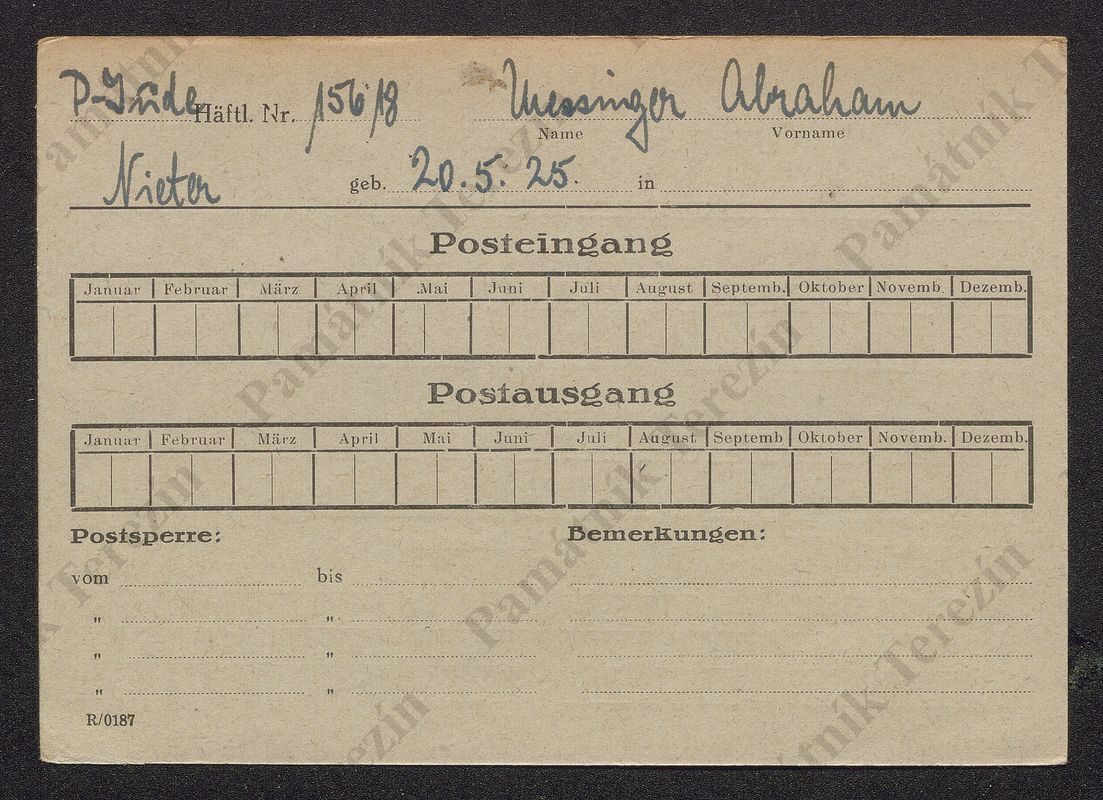 P-Jude Häftl. Nr. 15618 Messinger Abraham
Name Vorname
Nieter geb. 20.5.25. in
Posteingang
Januar Februar März April Mai Juni Juli August Septemb. Oktober Novemb. Dezemb.
Postausgang
Januar Februar März April Mai Juni Juli August Septemb Oktober Novemb. Dezemb.
Postsperre: Bemerkungen:
vom bis
" "
" "
" "
R/0187
Památník Terezín